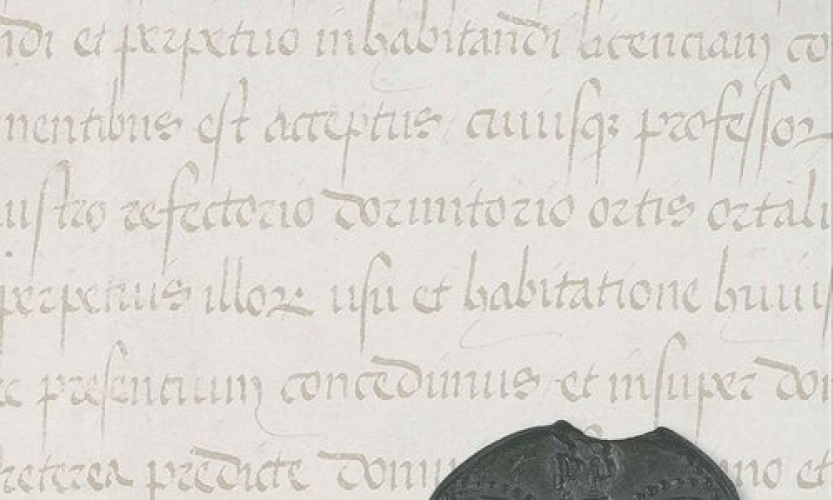 ndi et perpetuo inhabitandi licenciam co
nentibus est acceptus cuiusq; professor
ustro refectorio dormitorio ortis ortali
perpetuis illor usu et habitatione huius
presencium concedimus et insuper do
reterea predicte domu no et